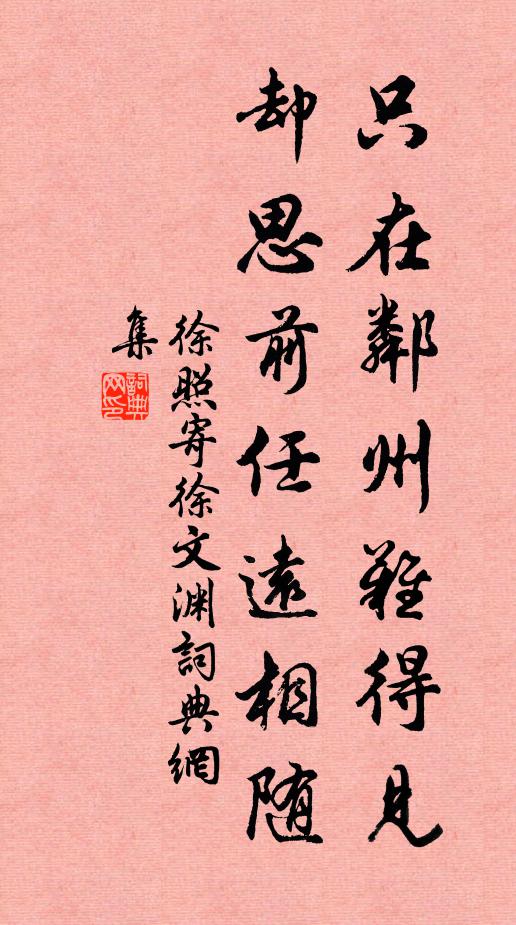 只在鄰州難得見
却思前任遠相随
徐照寄徐文渊詞典網
集
詞典
网印